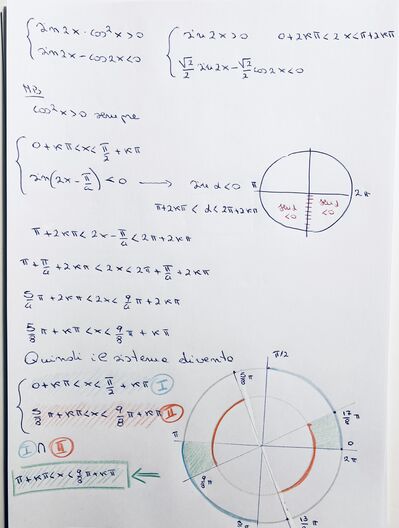 { sin 2x · cos²x > 0
sin 2x - cos 2x < 0
{ sin 2x > 0   0 + 2kπ < 2x < π + 2kπ
√2/2 sin 2x - √2/2 cos 2x < 0
NB
cos²x > 0 sempre
{ 0 + kπ < x < π/2 + kπ
sin(2x - π/4) < 0 → sin α < 0
π + 2kπ < α < 2π + 2kπ
π
2π
sin α < 0
sin α < 0
π + 2kπ < 2x - π/4 < 2π + 2kπ
π + π/4 + 2kπ < 2x < 2π + π/4 + 2kπ
5/4 π + 2kπ < 2x < 9/4 π + 2kπ
5/8 π + kπ < x < 9/8 π + kπ
Quindi il sistema diventa
{ 0 + kπ < x < π/2 + kπ I
5/8 π + kπ < x < 9/8 π + kπ II
I ∩ II
π + kπ < x < 9/8 π + kπ ⇐
π/2
5/8 π
17/8 π
π
0
2π
9/8 π
13/8 π